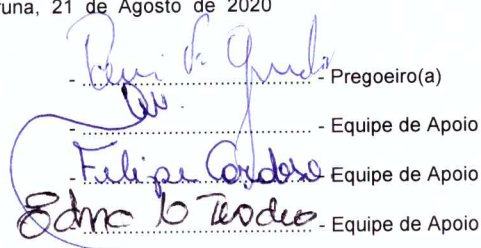 runa, 21 de Agosto de 2020
- ........................................ - Pregoeiro(a)
- ........................................ - Equipe de Apoio
- Felipe Cardoso - Equipe de Apoio
Edna - Equipe de Apoio